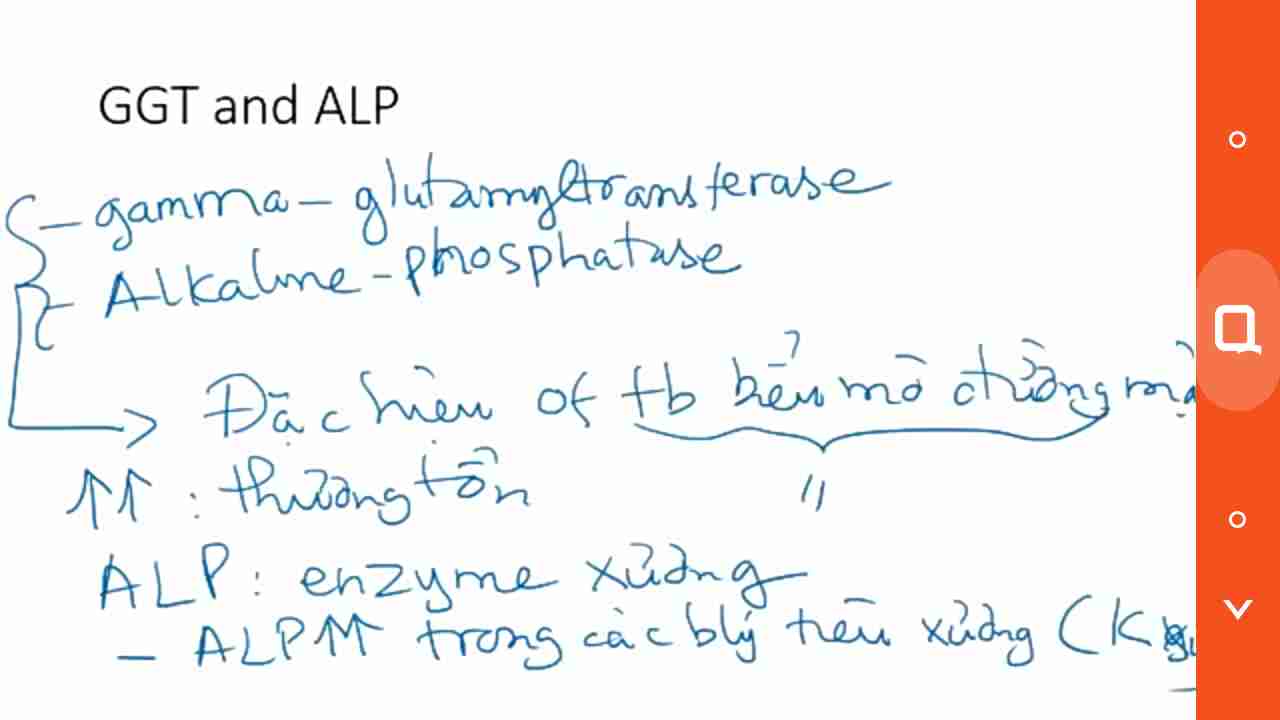 GGT and ALP
- gamma - glutamyltransferase
- Alkaline - phosphatase
Đặc hiệu of tb biểu mô đường
↑↑ : thương tổn
"
ALP: enzyme xương
- ALP↑↑ trong các blý tiêu xương (K